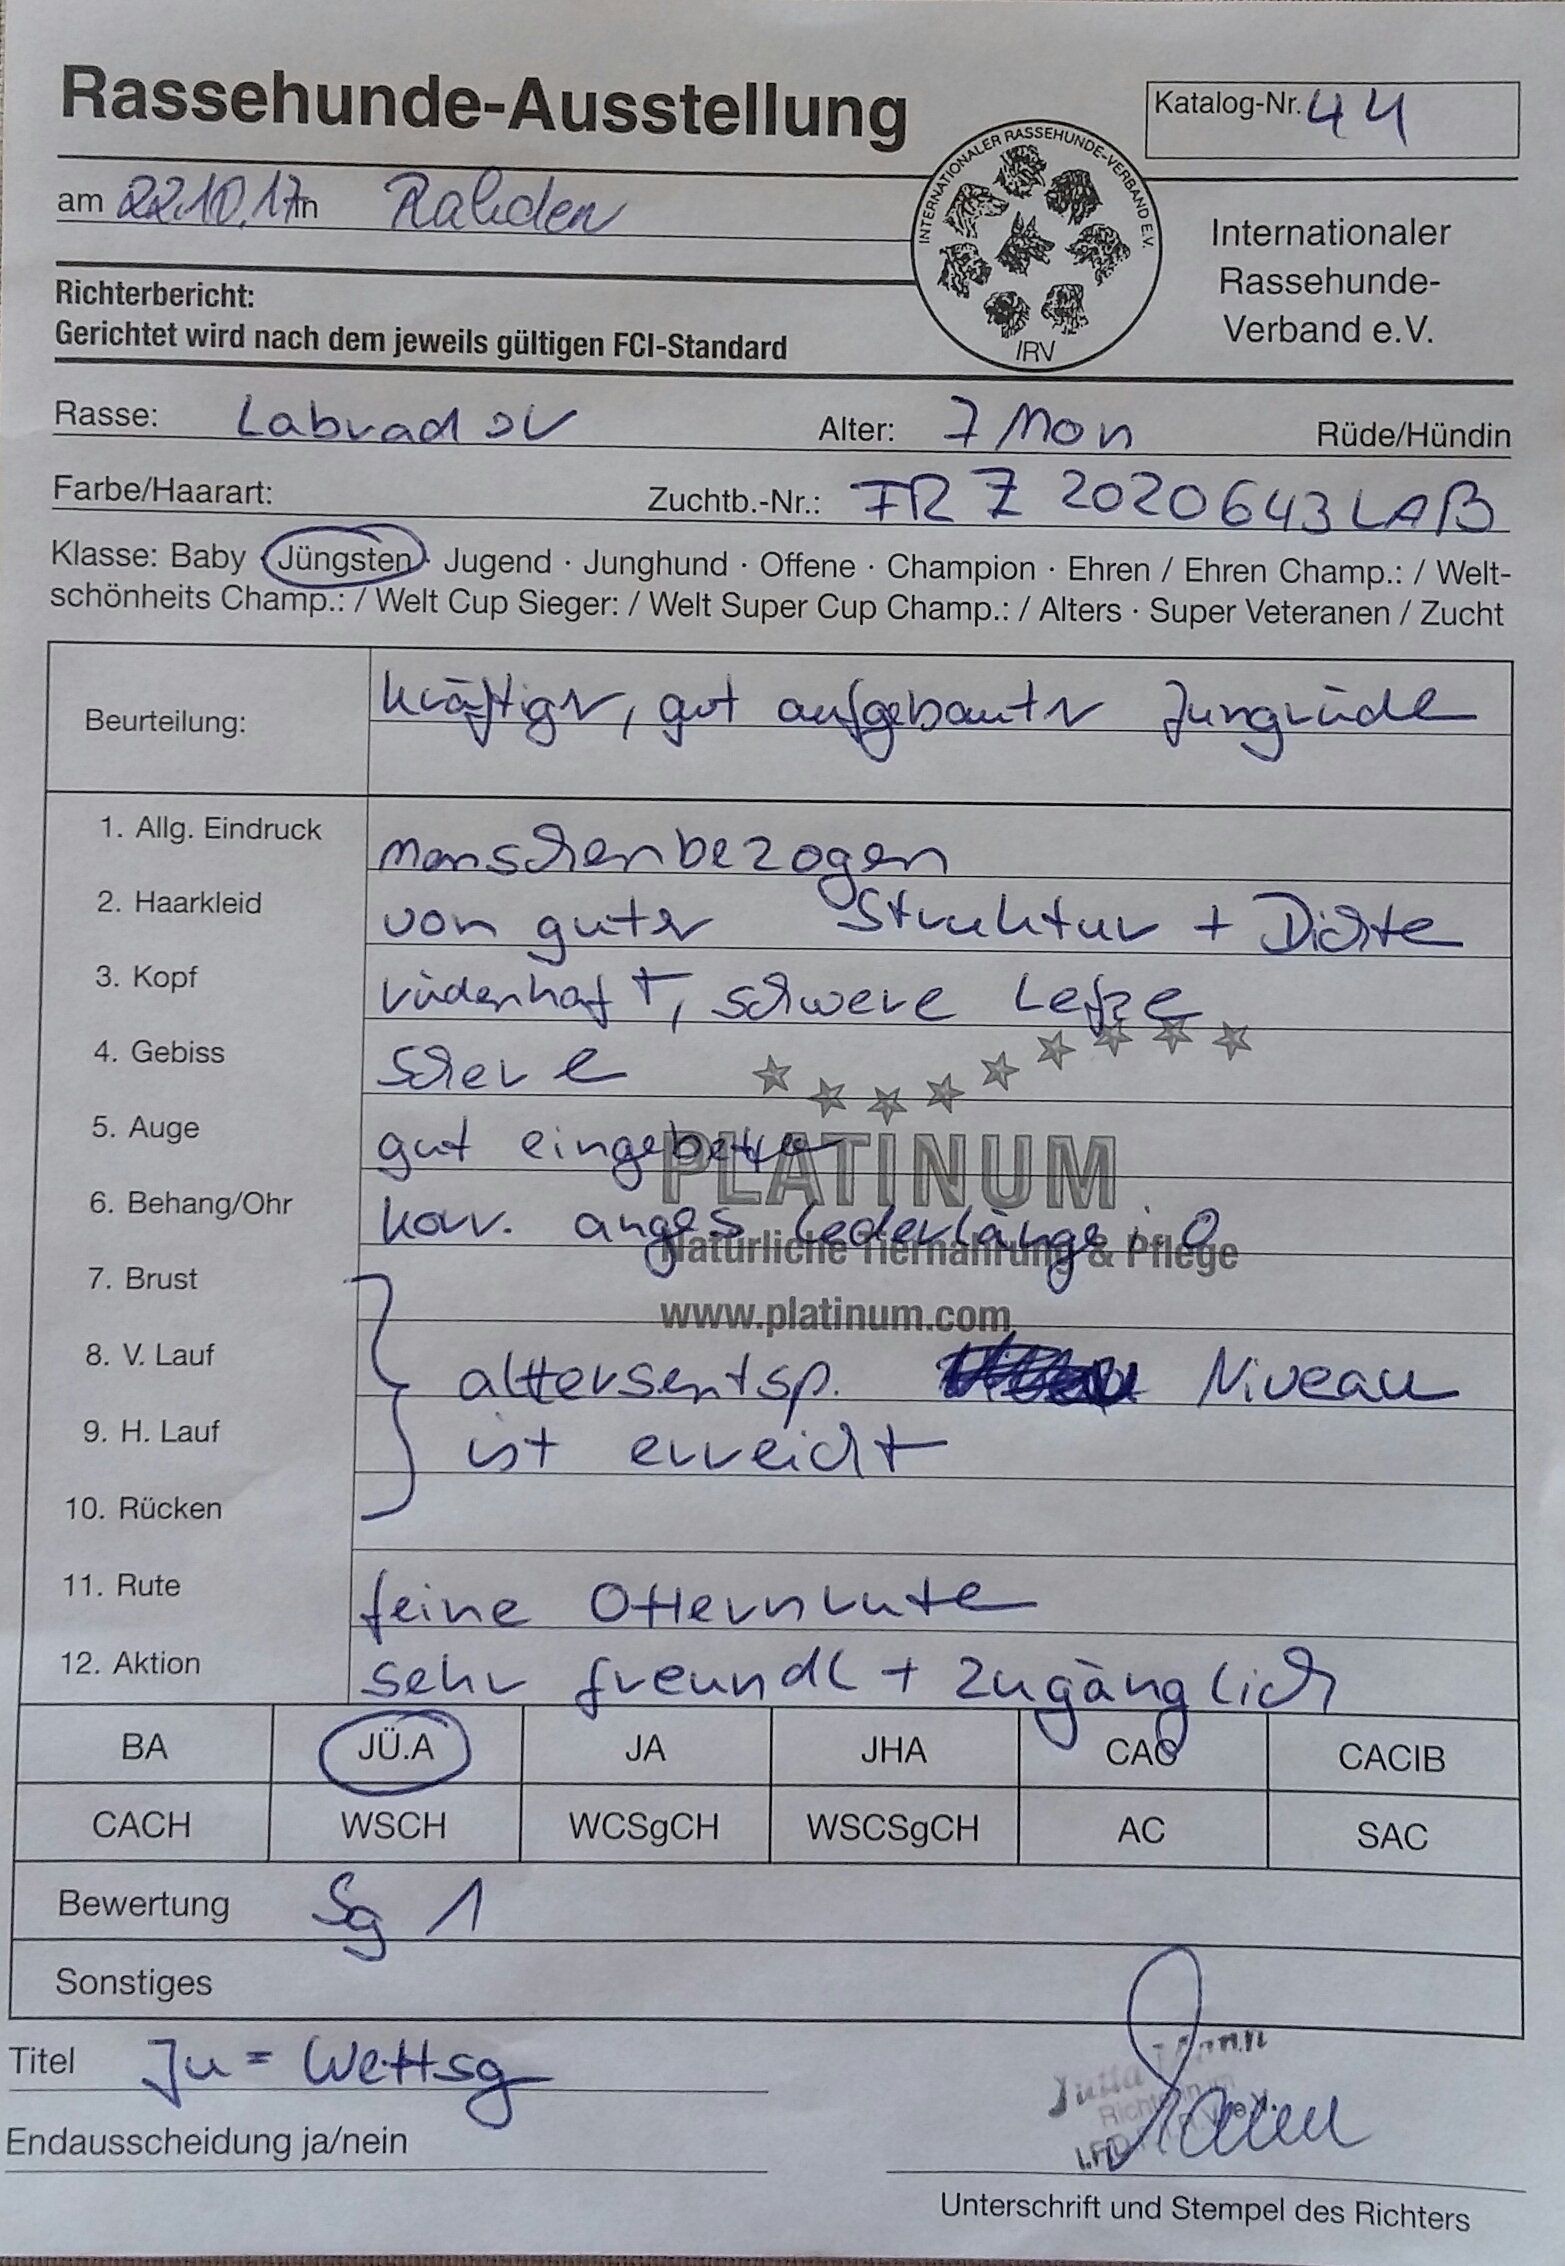 Rassehunde-Ausstellung
Katalog-Nr. 44
am 22.10.17 in Rahden
INTERNATIONALER RASSEHUNDE-VERBAND E.V.
IRV
Internationaler
Rassehunde-
Verband e.V.
Richterbericht:
Gerichtet wird nach dem jeweils gültigen FCI-Standard
Rasse: Labrador Alter: 7 Mon Rüde/Hündin
Farbe/Haarart: Zuchtb.-Nr.: FR Z 2020643 LAB
Klasse: Baby · Jüngsten · Jugend · Junghund · Offene · Champion · Ehren / Ehren Champ.: / Welt-
schönheits Champ.: / Welt Cup Sieger: / Welt Super Cup Champ.: / Alters · Super Veteranen / Zucht
Beurteilung: kräftiger, gut aufgebauter Jungrüde
1. Allg. Eindruck menschenbezogen
2. Haarkleid von guter Struktur + Dichte
3. Kopf rüdenhaft, schwere Lefze
4. Gebiss Schere
5. Auge gut
6. Behang/Ohr korr. anges Lederlänge i. O
PLATINUM
Natürliche Tiernahrung & Pflege
www.platinum.com
7. Brust
8. V. Lauf altersentsp. Niveau
9. H. Lauf ist erreicht
10. Rücken
11. Rute feine Otternrute
12. Aktion sehr freundl + zugänglich
BA JÜ.A JA JHA CAC CACIB
CACH WSCH WCSgCH WSCSgCH AC SAC
Bewertung Sg 1
Sonstiges
Titel Jü = Wettsg
Endausscheidung ja/nein
Unterschrift und Stempel des Richters